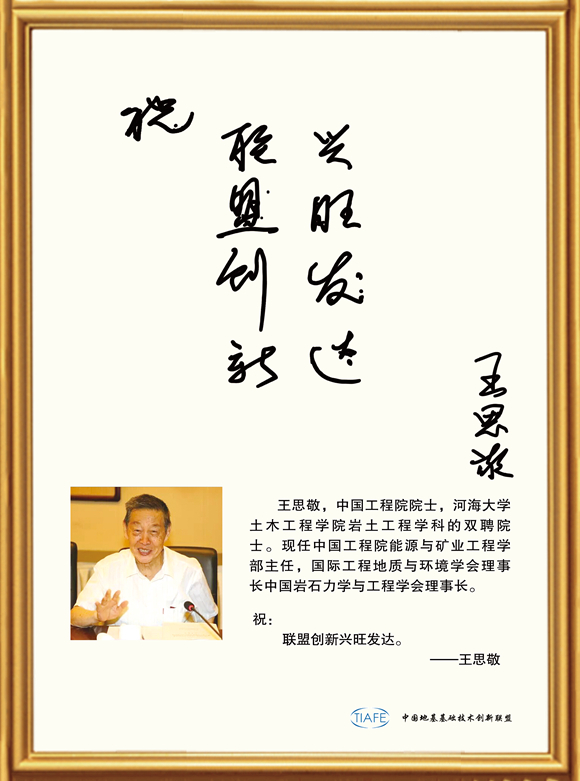 祝
联盟创新
兴旺发达
王思敬
王思敬，中国工程院院士，河海大学
土木工程学院岩土工程学科的双聘院
士。现任中国工程院能源与矿业工程学
部主任，国际工程地质与环境学会理事
长中国岩石力学与工程学会理事长。
祝：
联盟创新兴旺发达。
——王思敬
TIAFE 中国地基基础技术创新联盟